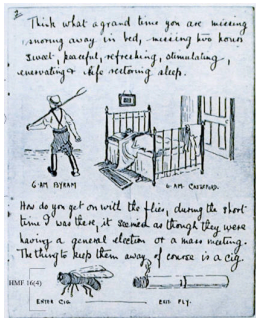 2
Think what a grand time you are missing
snoring away in bed, missing two hours
sweet, peaceful, refreshing, stimulating,
renovating & life restoring sleep.
6·AM BYRAM
6·AM· CRAWFORD.
How do you get on with the flies, during the short
time I was there, it seemed as though they were
having a general election or a mass meeting.
The thing to keep them away of course is a cig
HMF 16(4)
ENTER CIG
EXIT FLY.